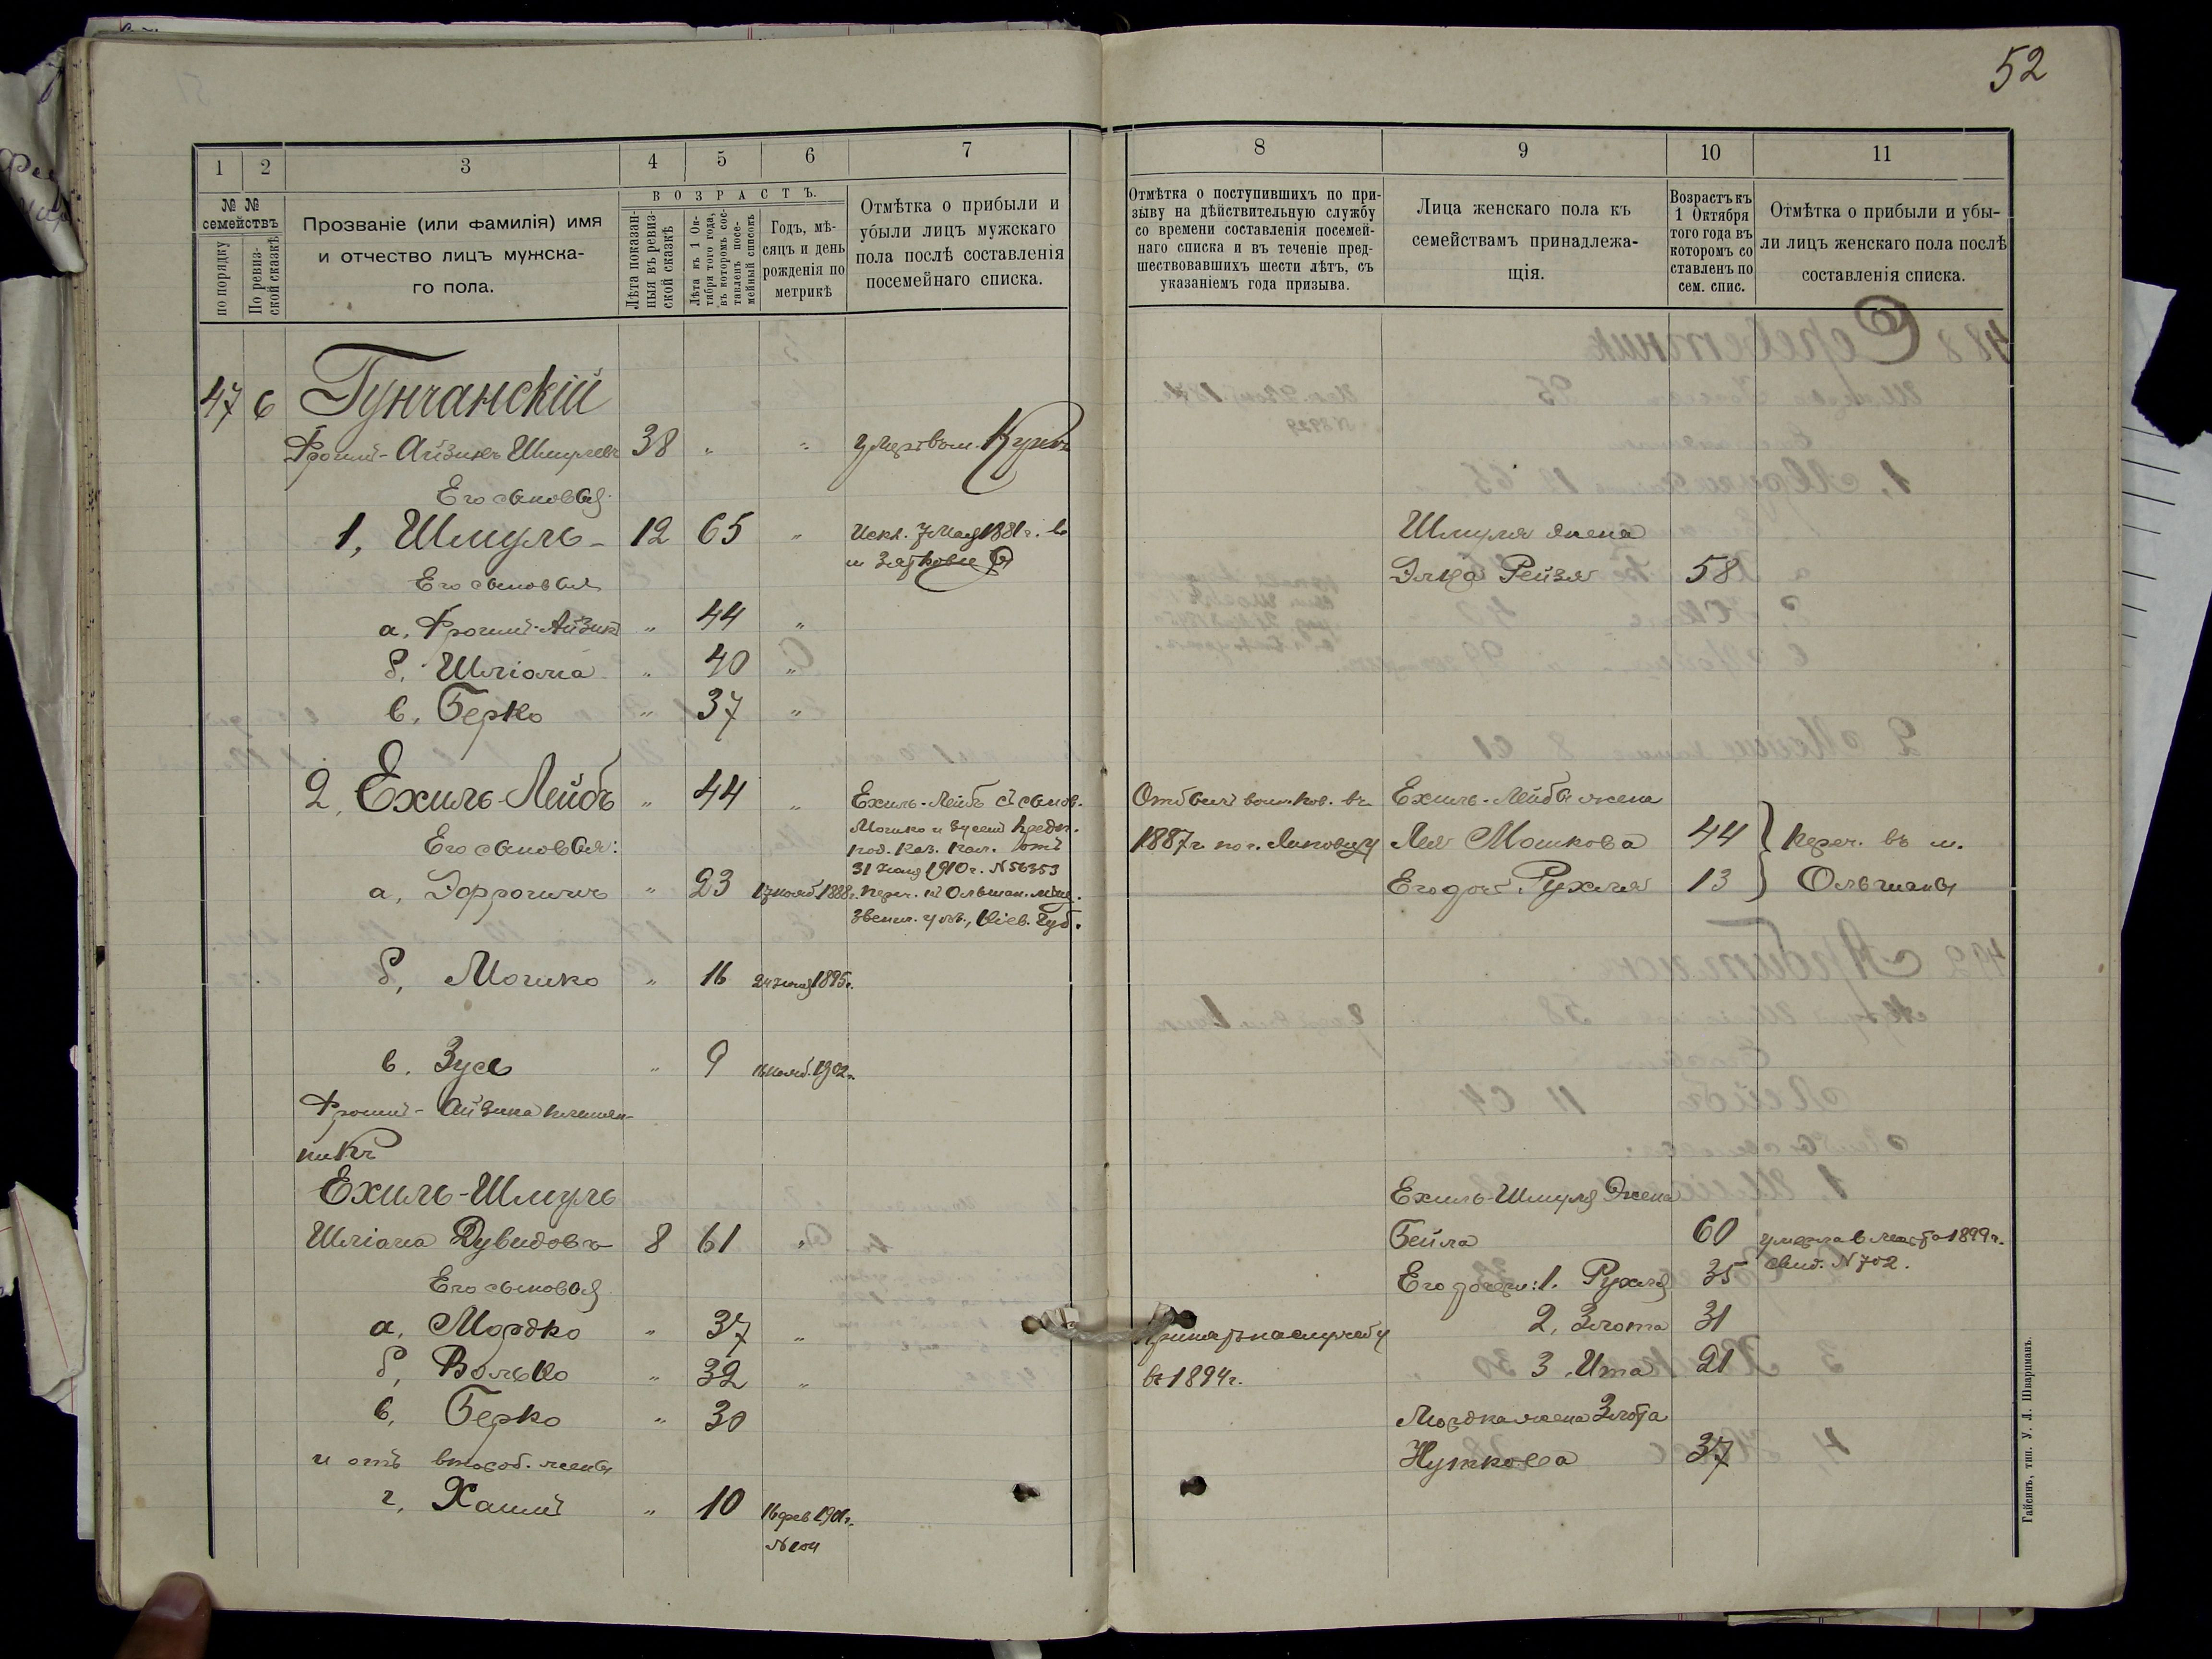 52
1 2 3 4 5 6 7
№ № семействъ
по порядку
По ревизской сказкѣ
Прозваніе (или фамилія) имя
и отчество лицъ мужска-
го пола.
ВОЗРАСТЪ.
Лѣта показан-
ныя въ ревиз-
ской сказкѣ
Лѣта къ 1 Ок-
тября того года,
въ которомъ сос-
тавленъ посе-
мейный списокъ
Годъ, мѣ-
сяцъ и день
рожденія по
метрикѣ
Отмѣтка о прибыли и
убыли лицъ мужскаго
пола послѣ составленія
посемейнаго списка.
47 6 Гунчанскій
Фроим-Айзикъ Шмулевъ 38 " "
Его сыновья
1, Шмуль 12 65 " Искл. 7 Мая 1881 г. въ
м Зятковце
Его сыновья
а, Фроим-Айзикъ " 44 "
б, Шліома " 40 "
в, Берко " 37 "
2, Ехиль-Лейбъ " 44 " Ехиль-Лейбъ съ сынов.
Мошко и Зусемъ предп.
Его сыновья: под. каз. пал. отъ
31 1910 г. N 56353
а, " 23 17 нояб 1888 г. переч. въ Ольшан. мѣщ.
Звениг. уѣз., Кіев. губ.
б, Мошко " 16 1895 г.
в, Зусь " 9 16 нояб. 1902 г.
Фроим-Айзика племян-
никъ
Ехиль-Шмуль
Шліома Дувидовъ 8 61 "
Его сыновья
а, Мордко " 37 "
б, Волько " 32 "
в, Берко " 30
и отъ жены
г, Хаимъ " 10 16 фев 1901 г.
N 104
8 9 10 11
Отмѣтка о поступившихъ по при-
зыву на дѣйствительную службу
со времени составленія посемей-
наго списка и въ теченіе пред-
шествовавшихъ шести лѣтъ, съ
указаніемъ года призыва.
Лица женскаго пола къ
семействамъ принадлежа-
щія.
Возрастъ къ
1 Октября
того года въ
которомъ со
ставленъ по
сем. спис.
Отмѣтка о прибыли и убы-
ли лицъ женскаго пола послѣ
составленія списка.
Шмуля жена
Рейзя 58
Отбылъ воин. пов. въ Ехиль-Лейбы жена
1887 г. по г. Липовцу Лея Мошкова 44 переч. въ м.
Его доч. Рухля 13 Ольшаны
Ехиль-Шмуля жена
Бейла 60 умерла 6 1899 г.
свид. N 702.
Его дочери: 1. Рухля 35
2, Злота 31
Принятъ на службу
въ 1894 г. 3, Ита 21
Мордка жена Злота
Нуткова 37
Гайсинъ, тип. У. Л. Шварцманъ.